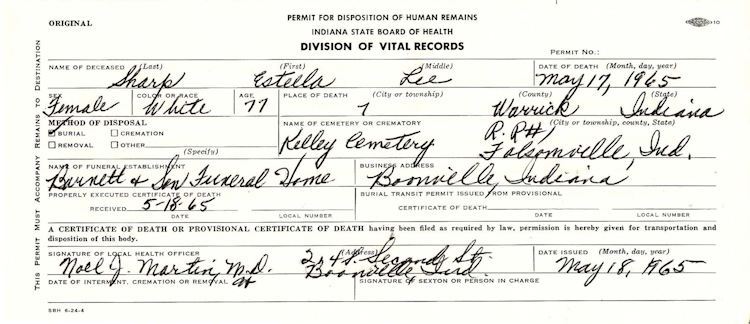 ORIGINAL
PERMIT FOR DISPOSITION OF HUMAN REMAINS
INDIANA STATE BOARD OF HEALTH
DIVISION OF VITAL RECORDS
PERMIT NO.:
THIS PERMIT MUST ACCOMPANY REMAINS TO DESTINATION
NAME OF DECEASED (Last) (First) (Middle) DATE OF DEATH (Month, day, year)
Sharp Estella Lee May 17, 1965
SEX COLOR OR RACE AGE PLACE OF DEATH (City or township) (County) (State)
Female White 77 Warrick Indiana
METHOD OF DISPOSAL NAME OF CEMETERY OR CREMATORY (City or township, county, State)
BURIAL CREMATION
REMOVAL OTHER
(Specify)
Kelley Cemetery R.R #1, Folsomville, Ind.
NAME OF FUNERAL ESTABLISHMENT BUSINESS ADDRESS
Barnett & Son Funeral Home Boonville, Indiana
PROPERLY EXECUTED CERTIFICATE OF DEATH BURIAL TRANSIT PERMIT ISSUED FROM PROVISIONAL
RECEIVED 5-18-65 CERTIFICATE OF DEATH
DATE LOCAL NUMBER DATE LOCAL NUMBER
A CERTIFICATE OF DEATH OR PROVISIONAL CERTIFICATE OF DEATH having been filed as required by law, permission is hereby given for transportation and
disposition of this body.
SIGNATURE OF LOCAL HEALTH OFFICER (Address) DATE ISSUED (Month, day, year)
Noel J. Martin, M.D. 224 S. Second St. May 18, 1965
Boonville, Ind.
DATE OF INTERMENT, CREMATION OR REMOVAL SIGNATURE OF SEXTON OR PERSON IN CHARGE
SBH 6-24-4